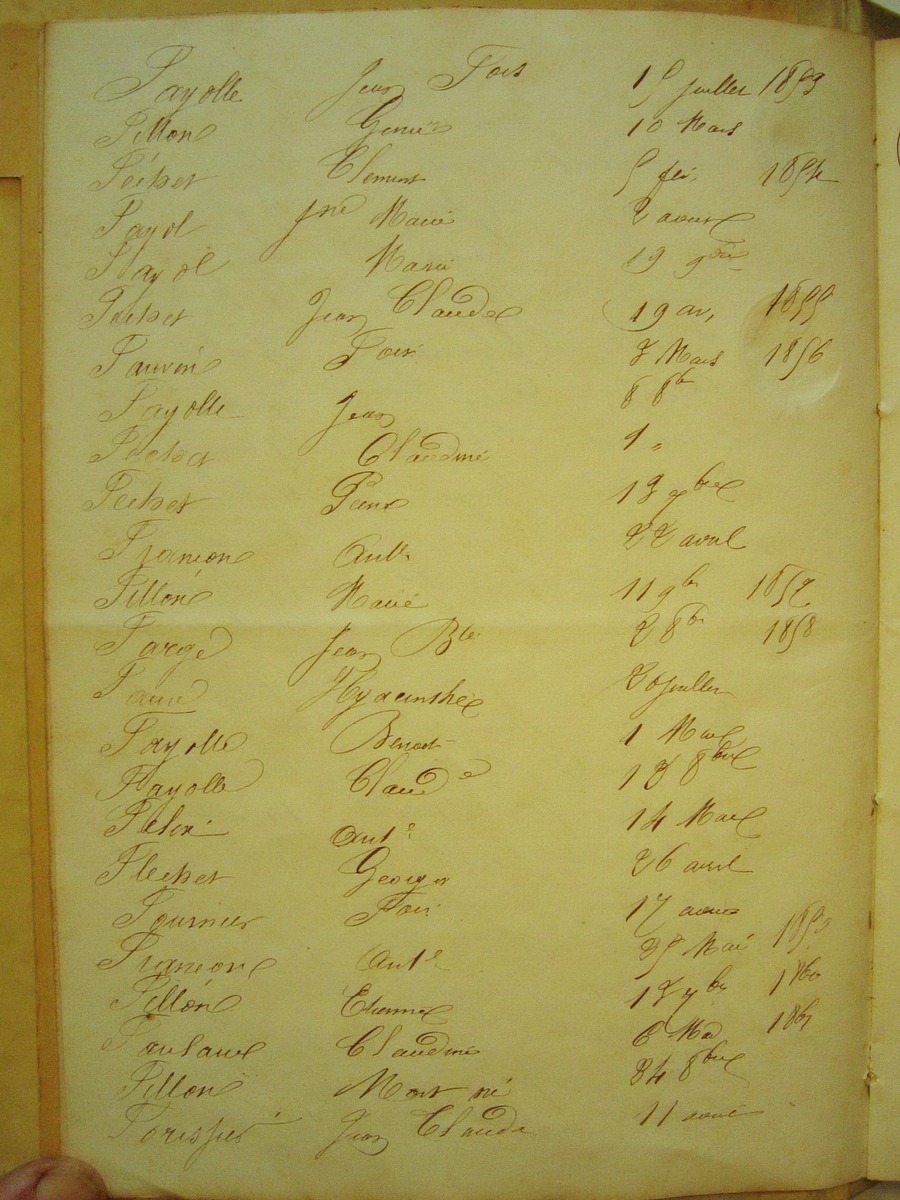 Fayolle Jean Fois 15 juillet 1853
Fillon 10 Mars
Féchet Clement 5 fév. 1854
Fayol Jne Marie 2 aout
Fayol Marie 19 9bre
Féchet Jean Claude 19 av, 1855
Fois 7 Mars 1856
Fayolle Jean 8 8bre
Claudine 1 "
Fechet Pierre 13 7bre
Françon Anth. 22 avril
Fillon Marie 11 9bre 1857
Farge Jean Bte 2 8bre 1858
Faure Hyacinthe 20 juillet
Fayolle Benoit 1 Mars
Fayolle Claude 13 8bre
Felix Ante 14 Mars
Flechet Georges 26 avril
Fournier Fois 17 aout
Françon Ante 25 Mai 1859
Fillon Etienne 13 7bre 1860
Claudine 6 Ma 1861
Fillon Mort né 24 8bre
Forissier Jean Claude 11 aout